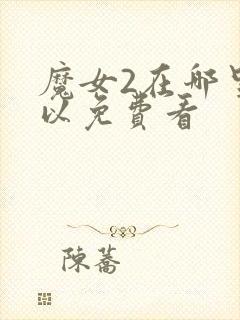 魔女2在哪里
以免费看
陳蕎